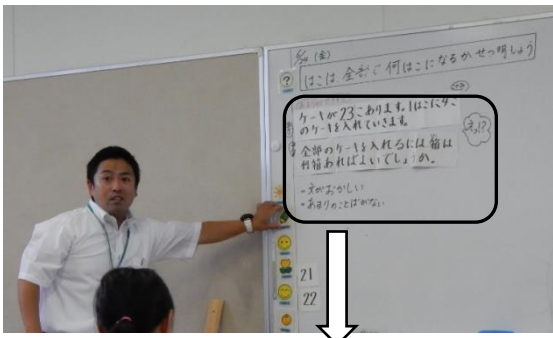 (金)
?
はこは、全部で何はこになるかせつ明しよう
ケーキが23こあります。1はこに4こ
のケーキを入れていきます。
全部のケーキを入れるには箱は
何箱あればよいでしょうか。
えっ!?
・文がおかしい
・あまりのことばがない
21
22